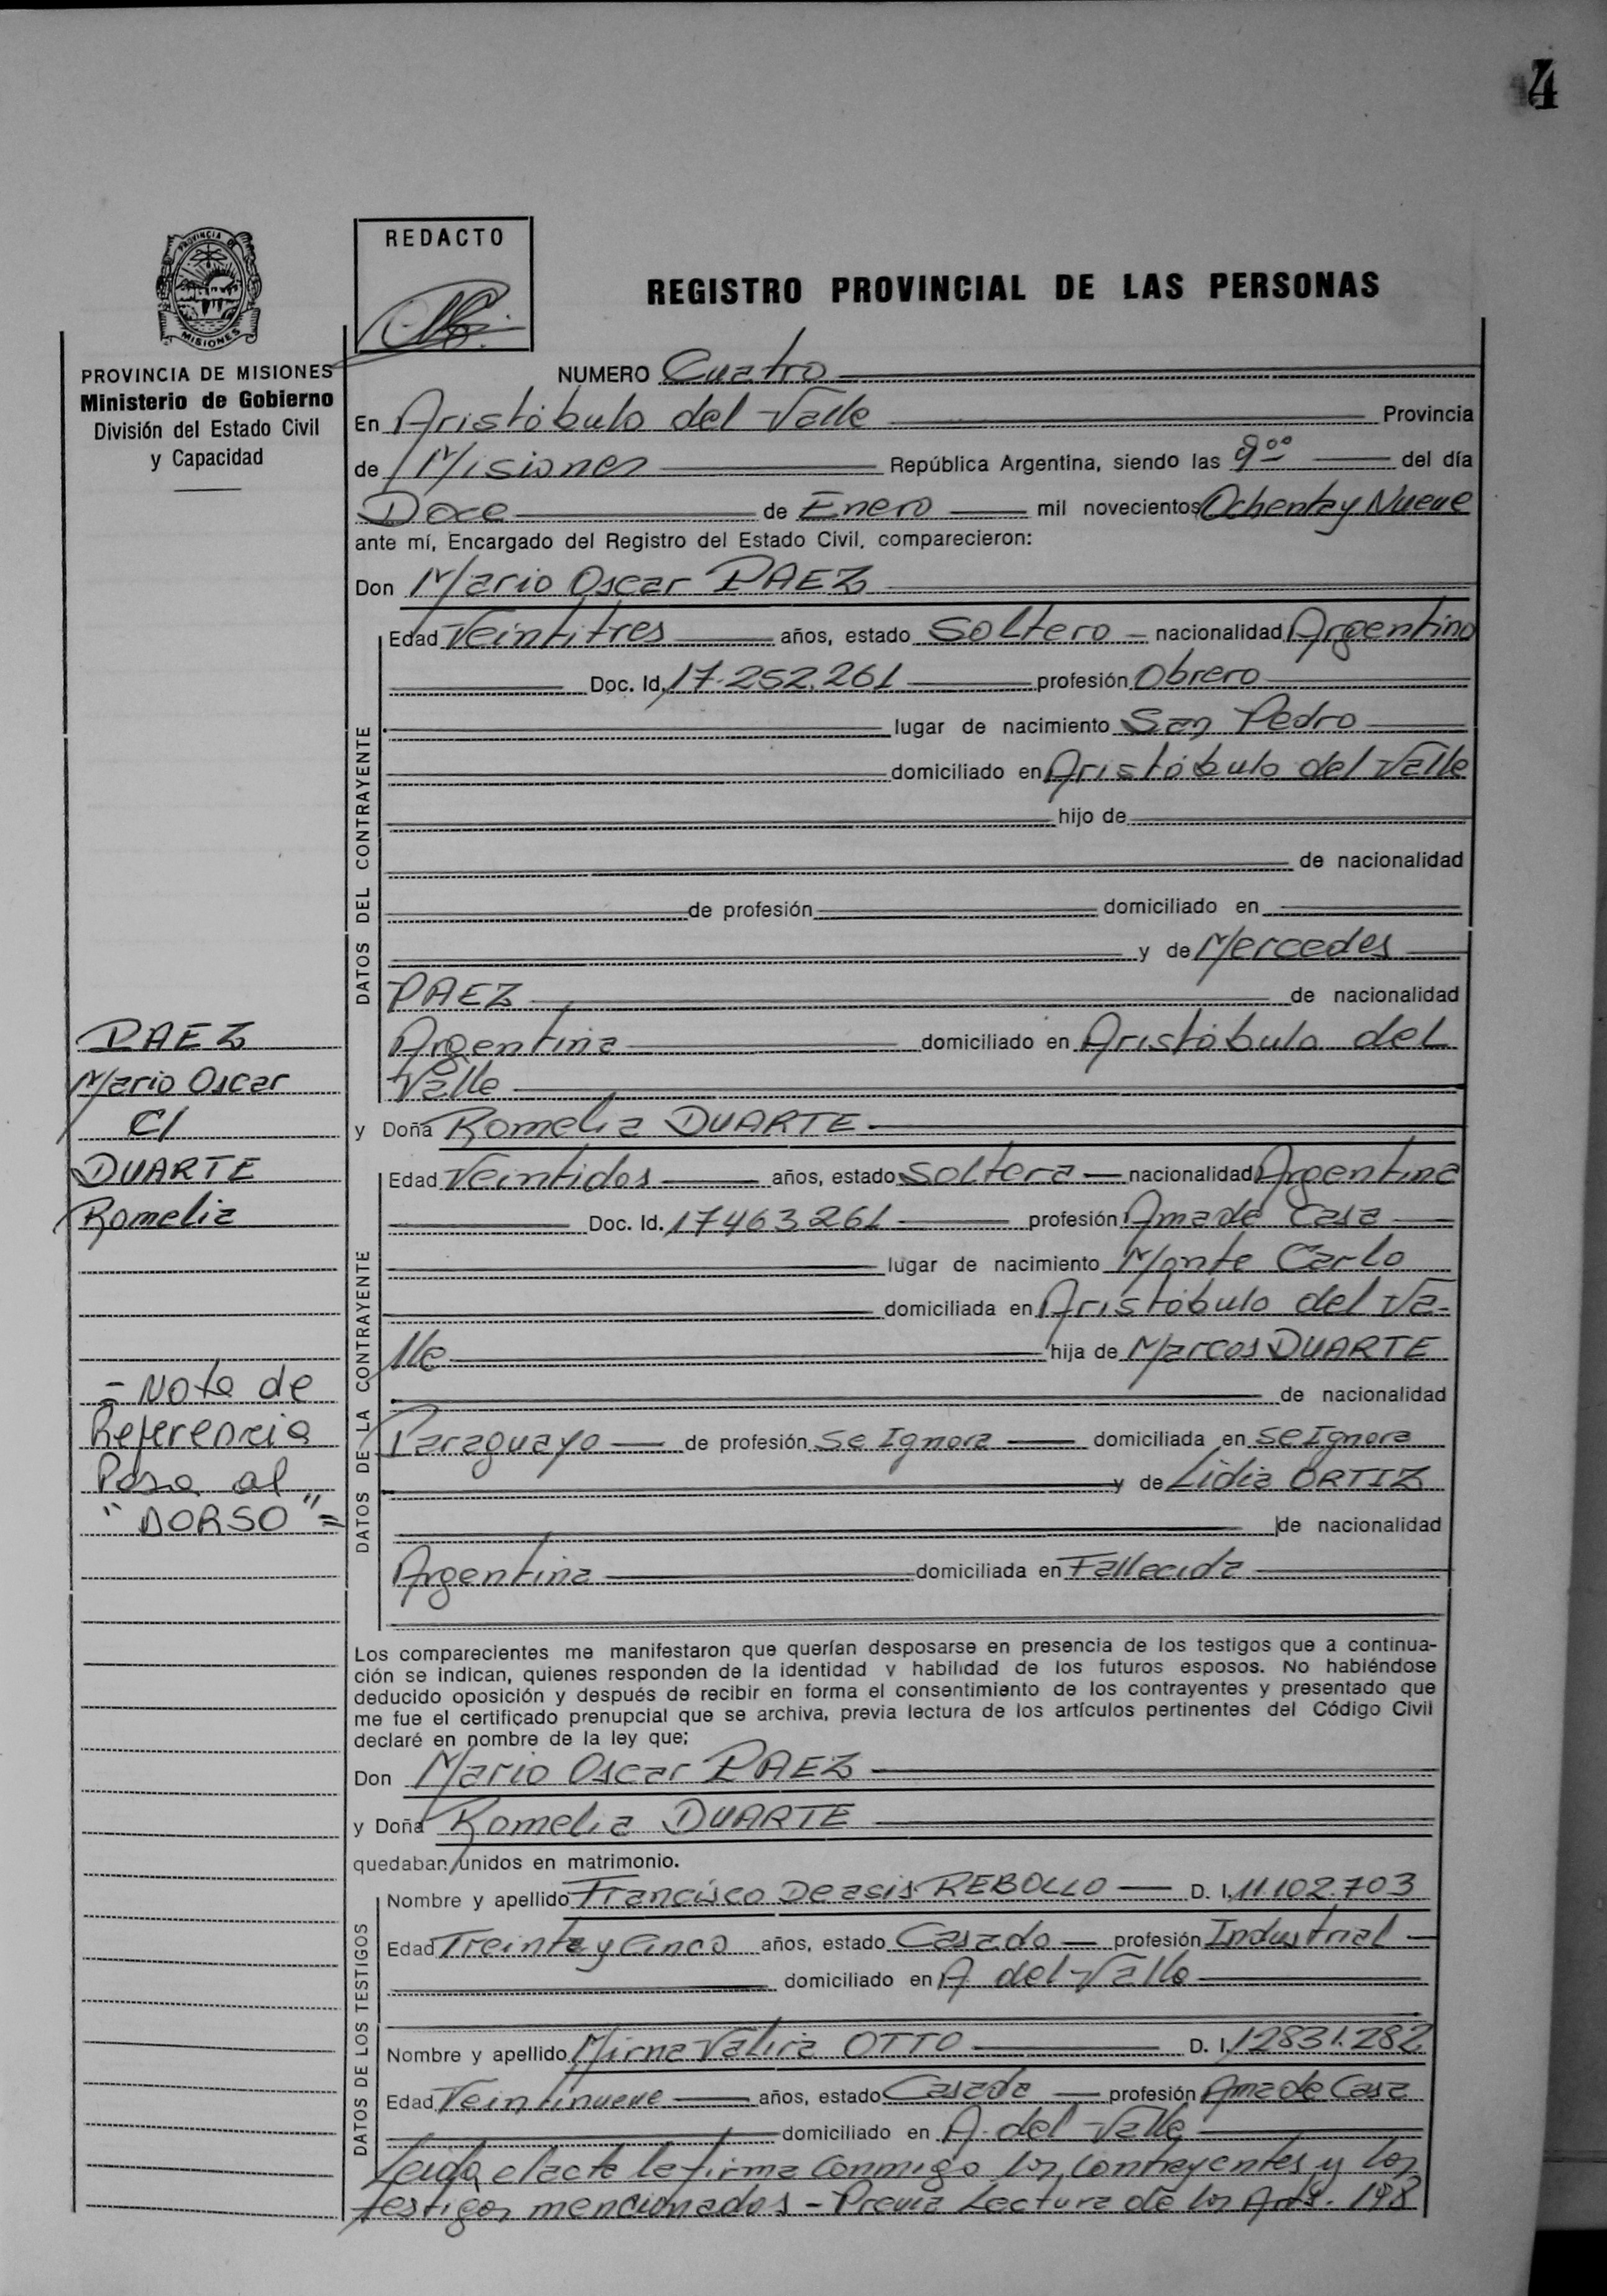 4
PROVINCIA DE
MISIONES
PROVINCIA DE MISIONES
Ministerio de Gobierno
División del Estado Civil
y Capacidad
REDACTO
REGISTRO PROVINCIAL DE LAS PERSONAS
NUMERO Cuatro
En Aristóbulo del Valle Provincia
de Misiones República Argentina, siendo las 9°° del día
Doce de Enero mil novecientos Ochenta y Nueve
ante mí, Encargado del Registro del Estado Civil, comparecieron:
Don Mario Oscar PAEZ
DATOS DEL CONTRAYENTE
Edad Veintitres años, estado Soltero nacionalidad Argentino
Doc. Id. 17.252.261 profesión Obrero
lugar de nacimiento San Pedro
domiciliado en Aristóbulo del Valle
hijo de
de nacionalidad
de profesión domiciliado en
y de Mercedes
PAEZ de nacionalidad
Argentina domiciliado en Aristóbulo del
Valle
PAEZ
Mario Oscar
C/
DUARTE
Romelia
y Doña Romelia DUARTE
DATOS DE LA CONTRAYENTE
Edad Veintidos años, estado Soltera nacionalidad Argentina
Doc. Id. 17463261 profesión Ama de Casa
lugar de nacimiento Monte Carlo
domiciliada en Aristóbulo del Va-
lle hija de Marcos DUARTE
de nacionalidad
Paraguayo de profesión Se Ignora domiciliada en Se Ignora
y de Lidia ORTIZ
de nacionalidad
Argentina domiciliada en Fallecida
= Nota de
Referencia
Pasa al
"DORSO"=
Los comparecientes me manifestaron que querían desposarse en presencia de los testigos que a continua-
ción se indican, quienes responden de la identidad y habilidad de los futuros esposos. No habiéndose
deducido oposición y después de recibir en forma el consentimiento de los contrayentes y presentado que
me fue el certificado prenupcial que se archiva, previa lectura de los artículos pertinentes del Código Civil
declaré en nombre de la ley que;
Don Mario Oscar PAEZ
y Doña Romelia DUARTE
quedaban unidos en matrimonio.
DATOS DE LOS TESTIGOS
Nombre y apellido Francisco De asis REBOLLO D. I. 11.102.703
Edad Treinta y Cinco años, estado Casado profesión Industrial
domiciliado en A. del Valle
Nombre y apellido Mirna Valiria OTTO D. I. 12831.282
Edad Veintinueve años, estado Casada profesión Ama de Casa
domiciliado en A. del Valle
Leida el acta la firma conmigo los contrayentes y los
testigos mencionados - Previa Lectura de los Arts. 198